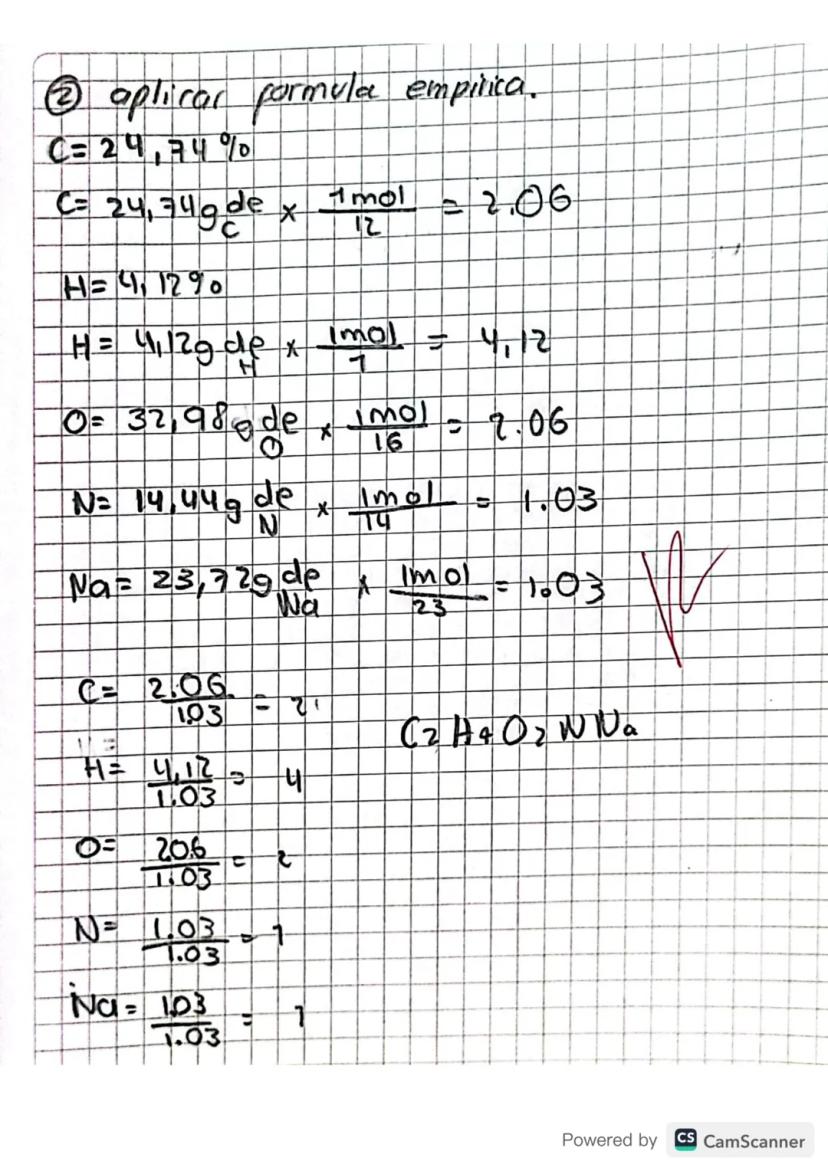 ② aplicar formula empirica.
C= 24,74%
C= 24,74g de C x 1mol/12 = 2.06
H= 4,12%
H= 4,12g de H x 1mol/1 = 4,12
O= 32,98g de O x 1mol/16 = 2.06
N= 14,44g de N x 1mol/14 = 1.03
Na= 23,72g de Na x 1mol/23 = 1.03
C= 2.06/1.03 = 2
C2 H4 O2 N Na
H= 4,12/1.03 = 4
O= 2.06/1.03 = 2
N= 1.03/1.03 = 1
Na= 1.03/1.03 = 1
Powered by CS CamScanner